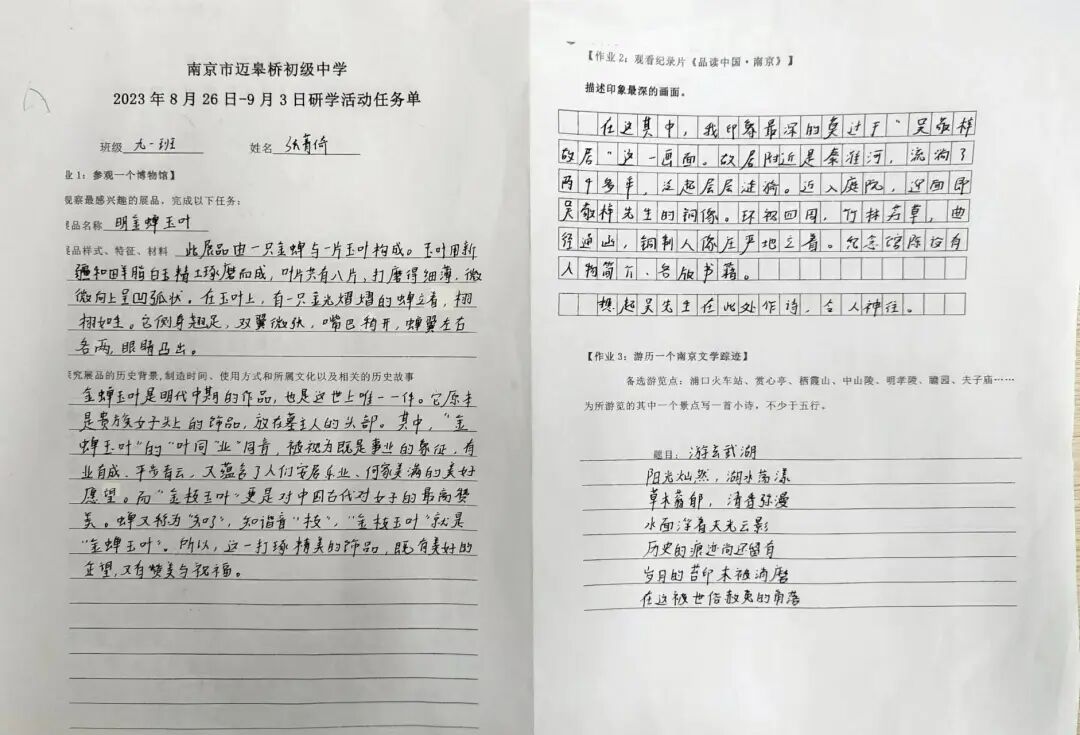 南京市迈皋桥初级中学
2023年8月26日-9月3日研学活动任务单
班级 九.一班 姓名
业1:参观一个博物馆】
观察最感兴趣的展品,完成以下任务:
展品名称 明金蝉玉叶
展品样式、特征、材料 此展品由一只金蝉与一片玉叶构成。玉叶用新
疆和田羊脂白玉精工琢磨而成,叶片共有八片,打磨得细薄,微
微向上呈凹弧状。在玉叶上,有一只金光熠熠的蝉立着,栩
栩如生。它侧身翘足,双翼微张,嘴巴稍开,蝉翼左右
各两,眼睛凸出。
探究展品的历史背景,制造时间、使用方式和所属文化以及相关的历史故事
金蝉玉叶是明代中期的作品,也是这世上唯一一件。它原本
是贵族女子头上的饰品,放在墓主人的头部。其中,“金
蝉玉叶”的“叶同“业”同音,被视为既是事业的象征,有
业有成、平步青云,又蕴含了人们安居乐业、何家美满的美好
愿望。而“金枝玉叶”更是对中国古代对女子的最高赞
美。蝉又称为“知了”,知谐音“枝”,“金枝玉叶”就是
“金蝉玉叶”。所以,这一打琢精美的饰品,既有美好的
企望,又有赞美与祝福。
【作业2:观看纪录片《品读中国·南京》】
描述印象最深的画面。
在这其中,我印象最深的莫过于“吴敬梓
故居”这一画面。故居附近是秦淮河,流淌了
两千多年,泛起层层涟漪。迈入庭院,迎面即
吴敬梓先生的铜像。环视四周,竹林芳草,曲
径通幽,铜制人像庄严地立着。纪念馆陈设有
人物简介、各版书籍。
想起吴先生在此处作诗,令人神往。
【作业3:游历一个南京文学踪迹】
备选游览点:浦口火车站、赏心亭、栖霞山、中山陵、明孝陵、瞻园、夫子庙……
为所游览的其中一个景点写一首小诗,不少于五行。
题目: 游玄武湖
阳光灿然,湖水荡漾
草木蓊郁,清香弥漫
水面浮着天光云影
历史的痕迹尚还留有
岁月的苔印未被消磨
在这被世俗赦免的角落